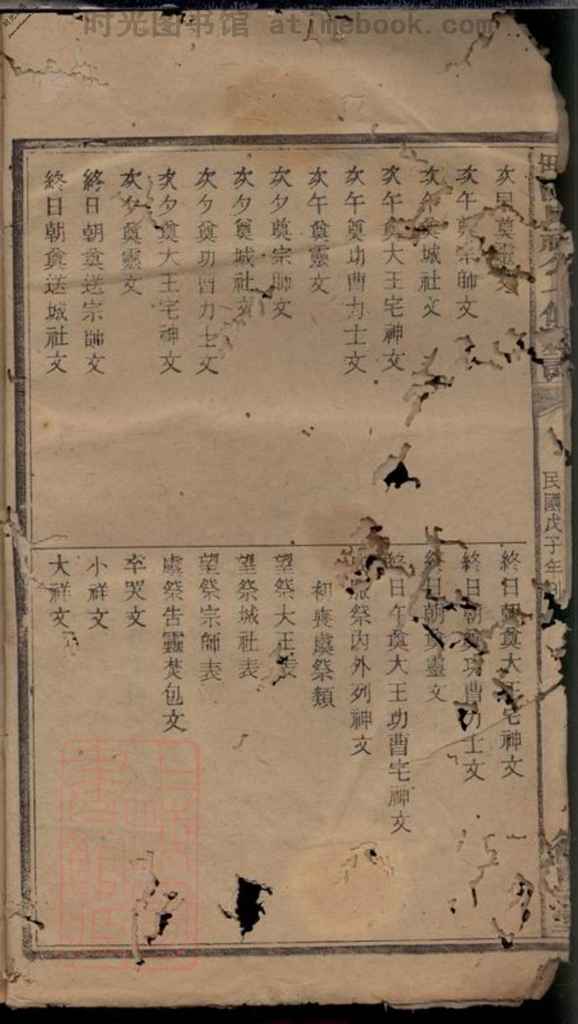 时光图书馆 atimebook.com
民國戊子年
次日奠靈文
次午奠宗師文
次午奠城社文
次午奠大王宅神文
次午奠功曹力士文
次午奠靈文
次夕奠宗師文
次夕奠城社文
次夕奠功曹力士文
次夕奠大王宅神文
次夕奠靈文
終日朝奠送宗師文
終日朝奠送城社文
終日朝奠大王宅神文
終日朝奠功曹力士文
終日朝奠靈文
終日午奠大王功曹宅神文
祭內外列神文
初喪虞祭類
望祭大王表
望祭城社表
望祭宗師表
虞祭告靈焚包文
卒哭文
小祥文
大祥文